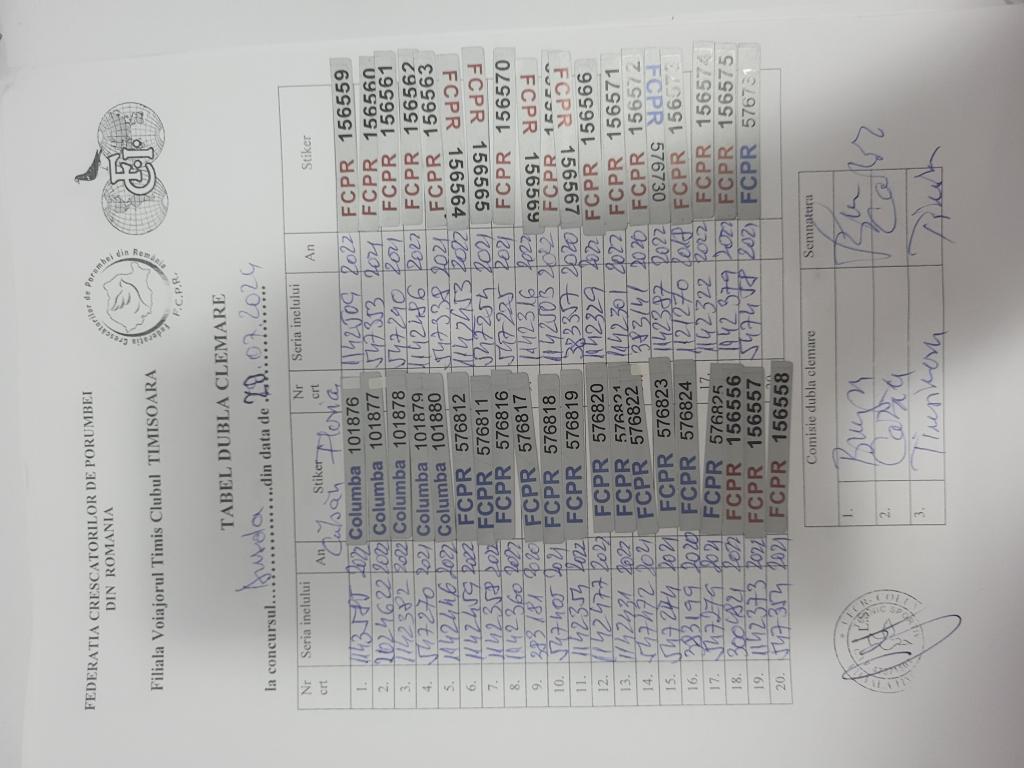 FEDERATIA CRESCATORILOR DE PORUMBEI
DIN ROMANIA
Filiala Voiajorul Timis Clubul TIMISOARA
Federatia Crescatorilor de Porumbei din România
F.C.P.R.
TABEL DUBLA CLEMARE
la concursul din data de 20.07.2024
Nr crt Seria inelului An Stiker Nr crt Seria inelului An Stiker
1. 1143575 2022 Columba 101876 1142509 2022 FCPR 156559
2. 2024622 2022 Columba 101877 547353 2021 FCPR 156560
3. 1142372 2022 Columba 101878 547240 2021 FCPR 156561
4. 547270 2021 Columba 101879 1142486 2022 FCPR 156562
5. 1142446 2022 Columba 101880 547328 2021 FCPR 156563
6. 1142459 2022 FCPR 576812 1142453 2022 FCPR 156564
7. 1142358 2022 FCPR 576811 547254 2021 FCPR 156565
8. 1142360 2022 FCPR 576816 547225 2021 FCPR 156570
9. 283181 FCPR 576817 1142316 2022 FCPR 156569
10. 547405 2021 FCPR 576818 1142503 2022 FCPR
11. 1142354 2022 FCPR 576819 383357 2020 FCPR 156567
12. 1142477 2022 FCPR 576820 1142329 2022 FCPR 156566
13. 1142431 2022 FCPR 576821 1142301 2022 FCPR 156571
14. 547472 2021 FCPR 576822 373141 2020 FCPR 156572
15. 547244 2021 FCPR 576823 1142387 2022 FCPR 576730
16. 383199 2020 FCPR 576824 121270 2018 FCPR
17. 547279 2021 FCPR 576825 17. 1142322 2022 FCPR 156574
18. 3004821 2022 FCPR 156556 1142379 2022 FCPR 156575
19. 1142373 2022 FCPR 156557 547458 2021 FCPR 576731
20. 547354 2021 FCPR 156558
Comisie dubla clemare Semnatura
1.
2.
3.